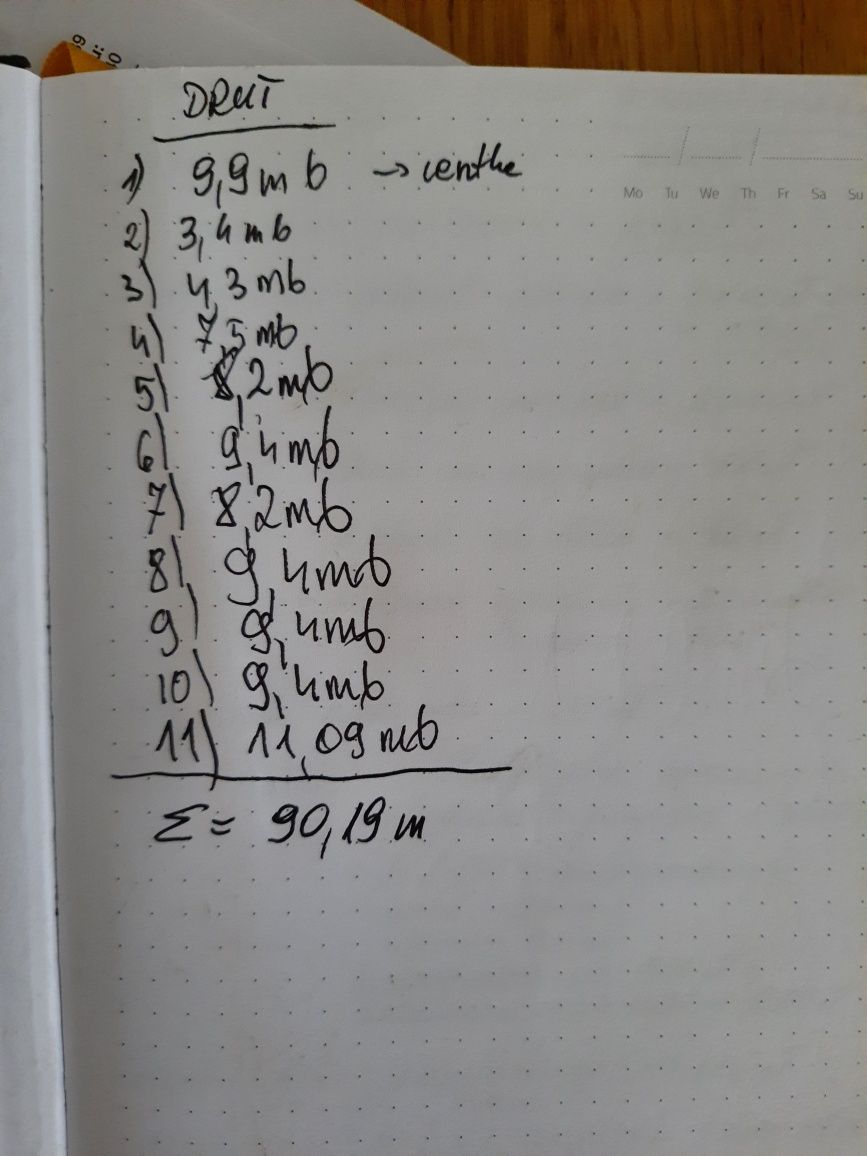 DRUT
1) 9,9 mb →
2) 3,4 mb
3) 4,3 mb
4) 7,5 mb
5) 8,2 mb
6) 9,4 mb
7) 8,2 mb
8) 9,4 mb
9) 9,4 mb
10) 9,4 mb
11) 11,09 mb
Σ = 90,19 m
Mo Tu We Th Fr Sa Su